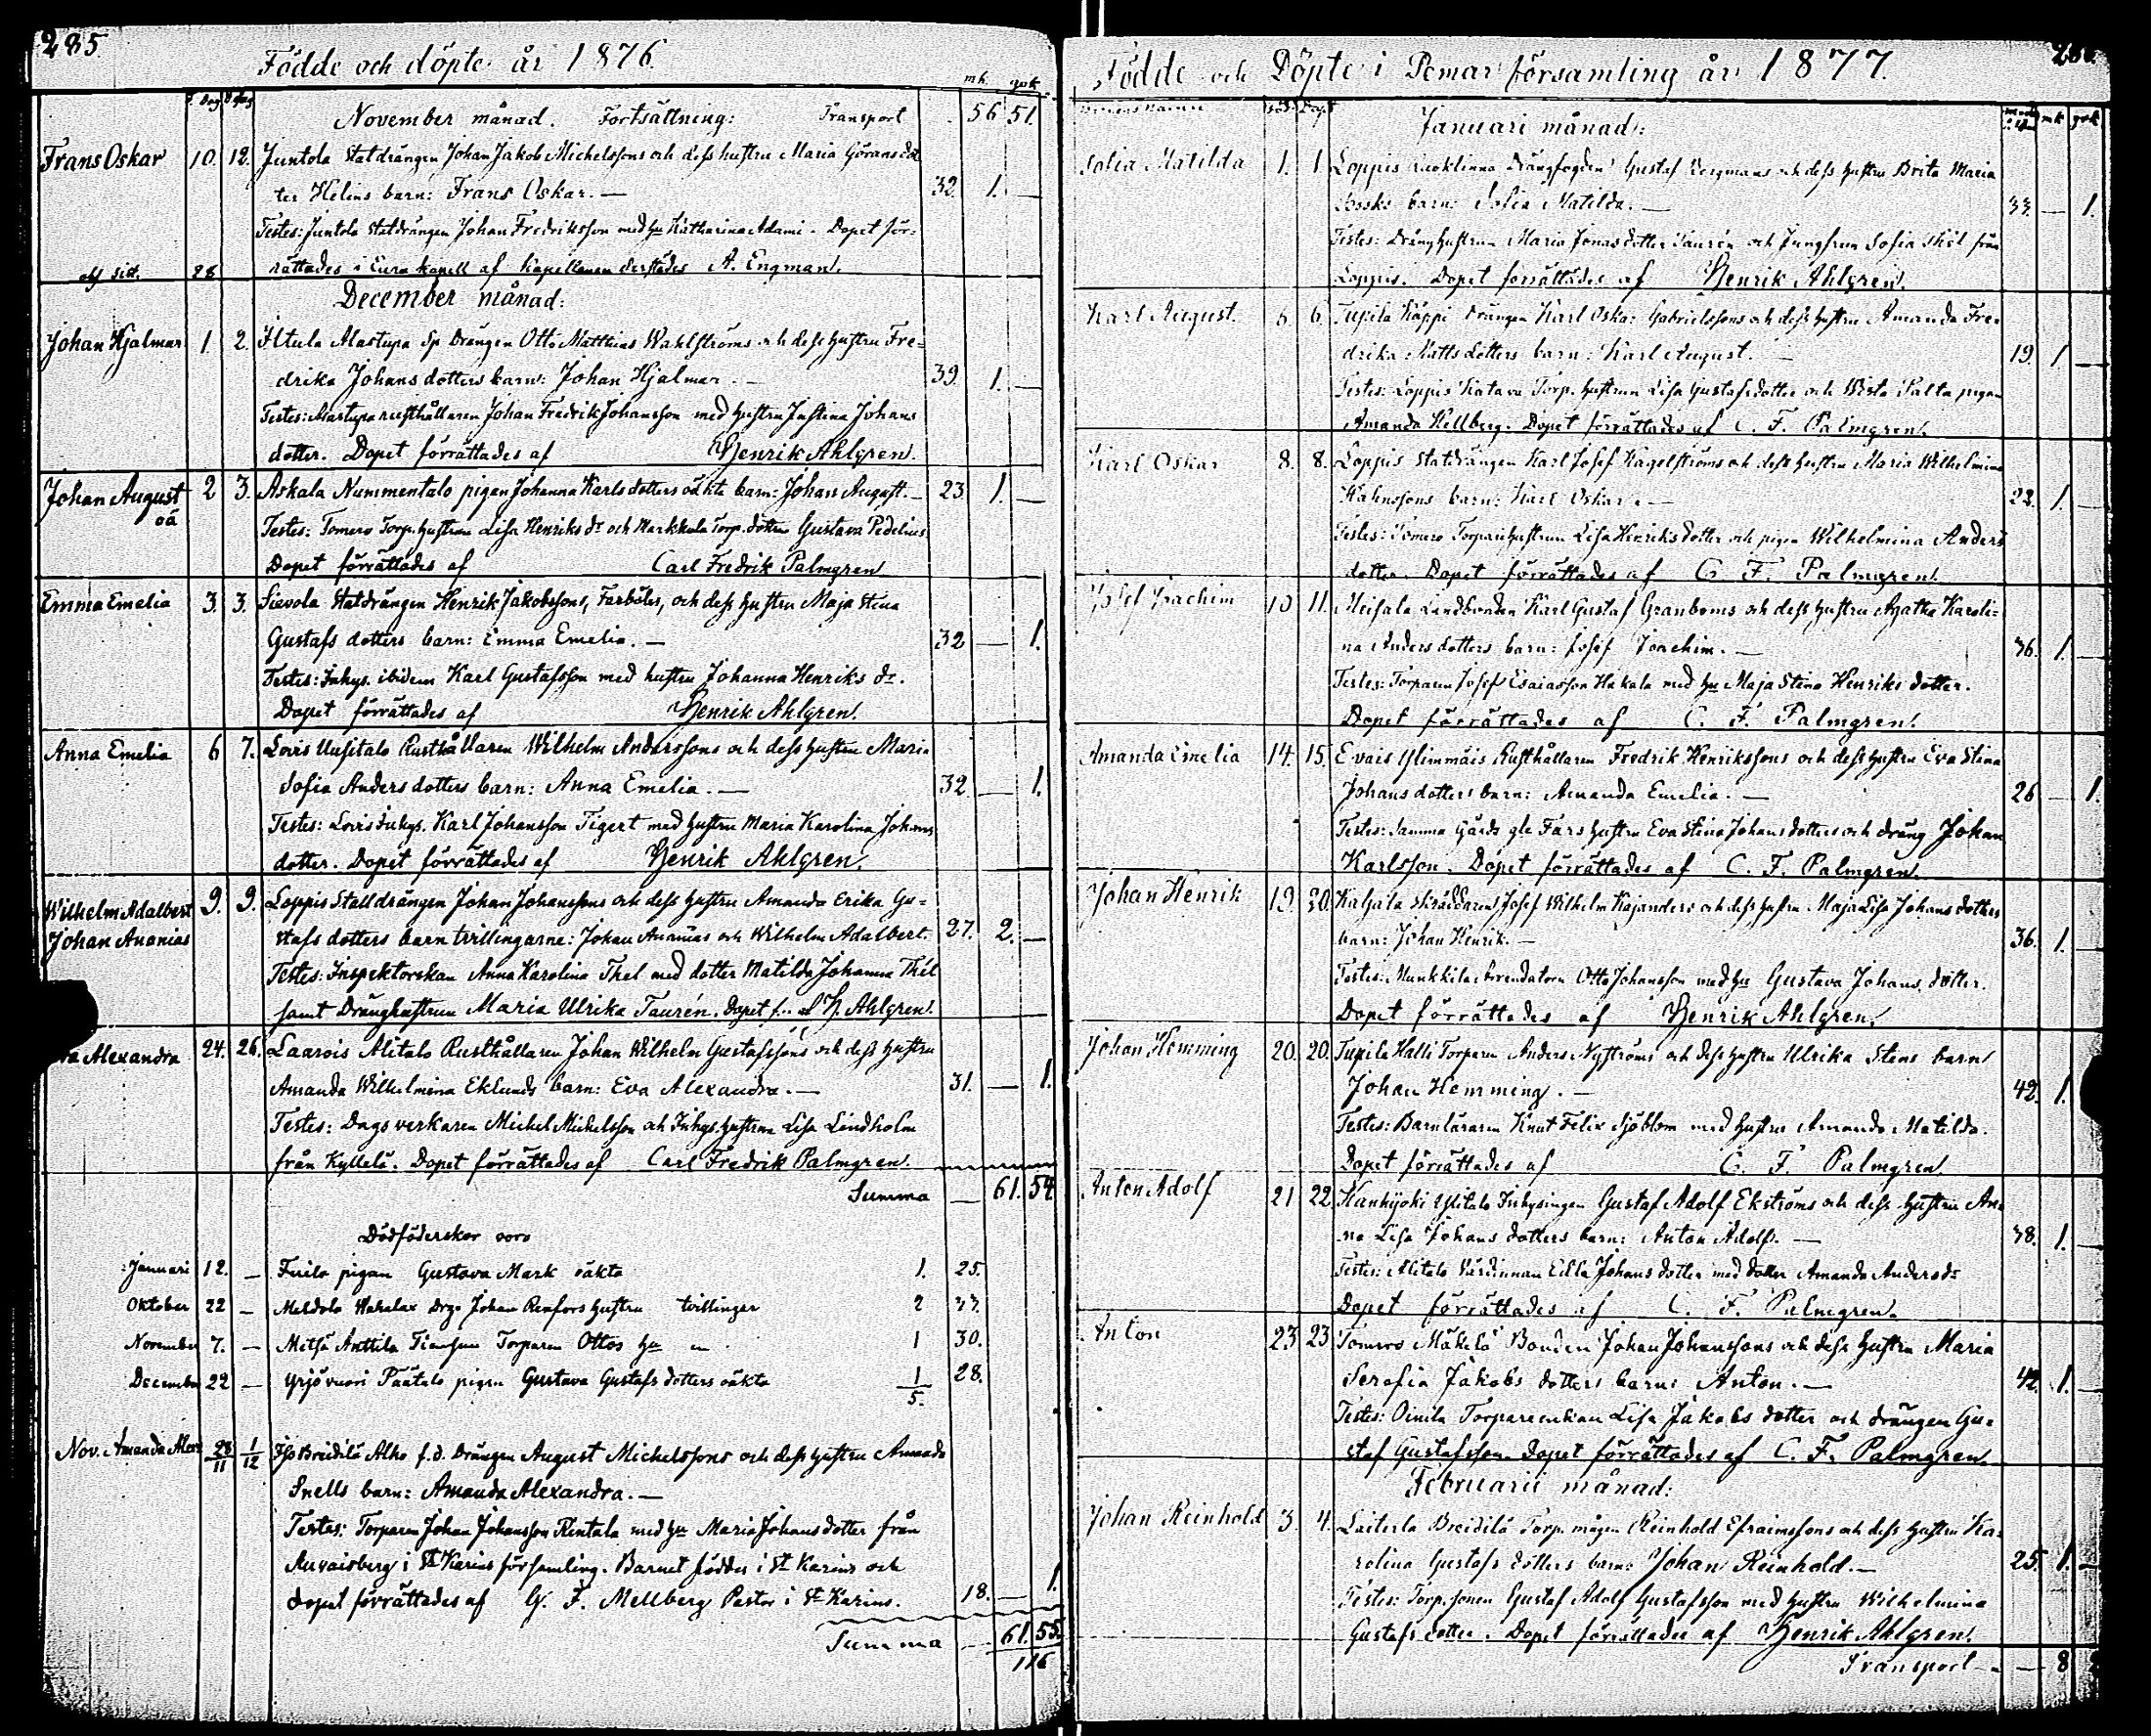 285.
Födde och döpte år 1876.
F. Dag D. dag mk. qvk.
November månad. Fortsättning: Transport 56 51.
Frans Oskar 10. 12. Juntola Statdrängen Johan Jakob Michelssons och dess hustru Maria Görans dot
ter Helins barn: Frans Oskar. — 32. 1. —
Testes: Juntola Statdrängen Johan Fredriksson med hu Katharina Adami. Dopet för:
28 rättades i Eura kapell af Kapellanen derstädes A. Engman.
December månad:
Johan Hjalmar 1. 2. Iltula Alastupa Sp Drängen Otto Matthias Wahlströms och dess hustru Fre=
drika Johans dotters barn: Johan Hjalmar. — 39. 1. —
Testes: Alastupa rusthållaren Johan Fredrik Johansson med hustru Justina Johans
dotter. Dopet förrättades af Henrik Ahlgren.
Johan August 2 3. Askala Nummentalo pigan Johanna Karls dotters oäkta barn: Johan August. — 23. 1. —
oä Testes: Tomero Torp. hustrun Lisa Henriks dr och Markkula Torp. dottren Gustava Pedelius
Dopet förrättades af Carl Fredrik Palmgren
Emma Emelia 3. 3. Sievola Statdrängen Henrik Jakobssons, Farböles, och dess hustru Maja Stina
Gustafs dotters barn: Emma Emelia. — 32 — 1.
Testes: Inhys. ibidem Karl Gustafsson med hustru Johanna Henriks dr.
Dopet förrättades af Henrik Ahlgren.
Anna Emelia 6 7. Lovis Uusitalo Rusthållaren Wilhelm Anderssons och dess hustru Maria
Sofia Anders dotters barn: Anna Emelia. — 32. — 1.
Testes: Lovis inhys. Karl Johansson Tigert med hustru Maria Karolina Johans
dotter. Dopet förrättades af Henrik Ahlgren.
Wilhelm Adalbert 9. 9. Loppis Stalldrängen Johan Johanssons och dess hustru Amanda Erika Gu=
Johan Ananias stafs dotters barn tvillingarne: Johan Ananias och Wilhelm Adalbert. 27. 2. —
Testes: Inspektorskan Anna Karolina Thel med dotter Matilda Johanna Thel
samt Dränghustrun Maria Ulrika Taurén. Dopet f.. af H. Ahlgren.
Alexandra 24. 26. Laarois Alitalo Rusthållaren Johan Wilhelm Gustafssons och dess hustru
Amanda Wilhelmina Eklunds barn: Eva Alexandra. — 31. — 1.
Testes: Dagsverkaren Michel Michelsson och Inhys. hustrun Lisa Lindholm
från Kyttelä. Dopet förrättades af Carl Fredrik Palmgren.
Summa — 61. 54
Dödföderskor voro
Januari 12. — pigan Gustava Mark oäkta 1. 25.
Oktober 22 — Meldola Drg. Johan Renfors hustru tvillingar 2 33.
November 7. — Mitsä Anttila Torparen Ottos hu 1 30.
December 22 — Yrjövuori Päätalo pigan Gustava Gustafs dotters oäkta 1 28.
5.
Nov. Amanda Alex 28/11 1/12 Breidilä Alho f.d. Drängen August Michelssons och dess hustru Amanda
Snells barn: Amanda Alexandra. —
Testes: Torparen Johan Johansson Rintala med hu Maria Johans dotter från
Auvaisberg i St Karins församling. Barnet föddes i St Karins och
dopet förrättades af G. F. Mellberg Pastor i St Karins. 18. — 1.
Summa — 61. 55.
116
Födde och Döpte i Pemar församling år 1877.
Januari månad:
Sofia Matilda 1. 1 Loppis drängfogden Gustaf Bergmans och dess hustru Brita Maria
barn: Sofia Matilda. — 33. — 1.
Testes: Dränghustrun Maria Jonas dotter Taurén och Jungfrun Sofia från
Loppis. Dopet förrättades af Henrik Ahlgren.
Karl August. 6. 6. Tupila Käppi drängen Karl Oskar Gabrielssons och dess hustru Amanda Fre
drika Matts dotters barn: Karl August. — 19. 1. —
Testes: Loppis Katava Torp. hustrun Lisa Gustafs dotter och Wista Palta pigan
Amanda Hellberg. Dopet förrättades af C. F. Palmgren.
Karl Oskar 8. 8. Loppis Statdrängen Karl Josef Hagelströms och dess hustru Maria Wilhelmina
barn: Karl Oskar. — 22. 1. —
Testes: Tomero Torparehustrun Lisa Henriks dotter och pigan Wilhelmina Anders
dotter. Dopet förrättades af C. F. Palmgren.
Josef Joachim 10 11. Meisala Landbonden Karl Gustaf Granboms och dess hustru Agatha Karoli=
na Anders dotters barn: Josef Joachim. — 36. 1. —
Testes: Torparen Josef Esaiasson Hakala med hu Maja Stina Henriks dotter.
Dopet förrättades af C. F. Palmgren.
Amanda Emelia 14. 15. Evais Ylimmäis Rusthållaren Fredrik Henrikssons och dess hustru Eva Stina
Johans dotters barn: Amanda Emelia. — 26 — 1.
Testes: Samma gårds gle Fars hustru Eva Stina Johans dotter och dräng Johan
Karlsson. Dopet förrättades af C. F. Palmgren.
Johan Henrik 19. 20. Kaljala skräddaren Josef Wilhelm Kajanders och dess hustru Maja Lisa Johans dotters
barn: Johan Henrik. — 36. 1. —
Testes: Munkkila Arrendatorn Otto Johansson med hu Gustava Johans dotter.
Dopet förrättades af Henrik Ahlgren.
Johan Hemming 20. 20. Tupila Halli Torparen Anders Nyströms och dess hustru Ulrika Stens barn
Johan Hemming. — 42. 1.
Testes: Barnläraren Knut Felix Sjöblom med hustru Amanda Matilda.
Dopet förrättades af C. F. Palmgren
Anton Adolf 21 22. Kankijoki Ylitalo Inhysingen Gustaf Adolf Ekströms och dess hustru An
na Lisa Johans dotters barn: Anton Adolf. — 38. 1. —
Testes: Alitalo Värdinnan Edla Johans dotter med dotter Amanda Anders dr
Dopet förrättades af C. F. Palmgren.
Anton 23 23 Tomero Mäkelä Bonden Johan Johanssons och dess hustru Maria
Serafia Jakobs dotters barn: Anton. — 42. 1. —
Testes: Oinila Torpareenkan Lisa Jakobs dotter och drängen Gu=
staf Gustafsson. Dopet förrättades af C. F. Palmgren
Februarii månad:
Johan Reinhold 3. 4. Breidilä Torp. mågen Reinhold Efraimssons och dess hustru Ka=
rolina Gustafs dotters barn: Johan Reinhold. — 25. 1. —
Testes: Torp. sonen Gustaf Adolf Gustafsson med hustru Wilhelmina
Gustafs dotter. Dopet förrättades af Henrik Ahlgren.
Transport — — 8